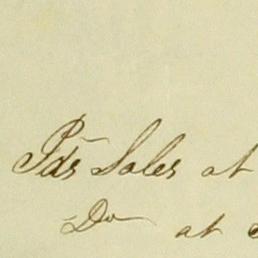 Pds Sales at
Do at